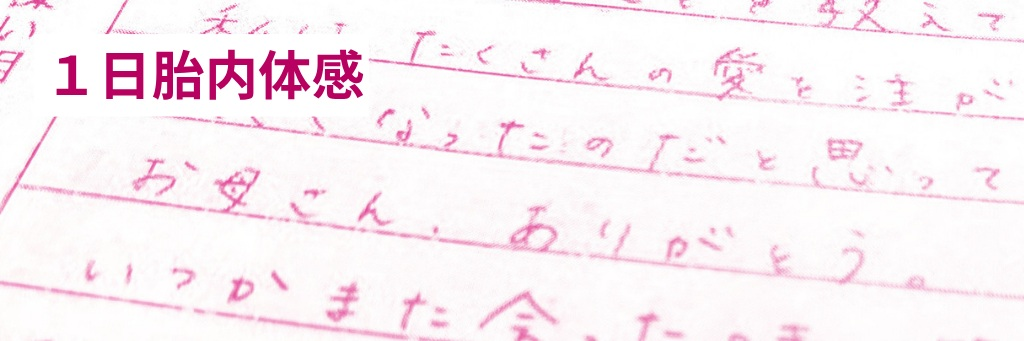 １日胎内体感
教えて
たくさんの愛を注が
なったのだと思って
お母さん、ありがとう。
いつかまた会